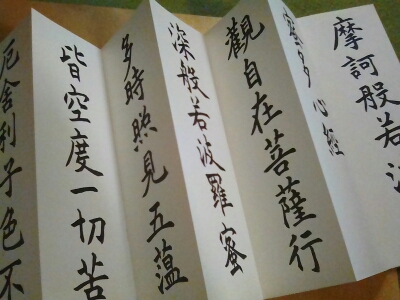 摩訶般若波
蜜多心經
觀自在菩薩行
深般若波羅蜜
多時照見五蘊
皆空度一切苦
厄舍利子色不